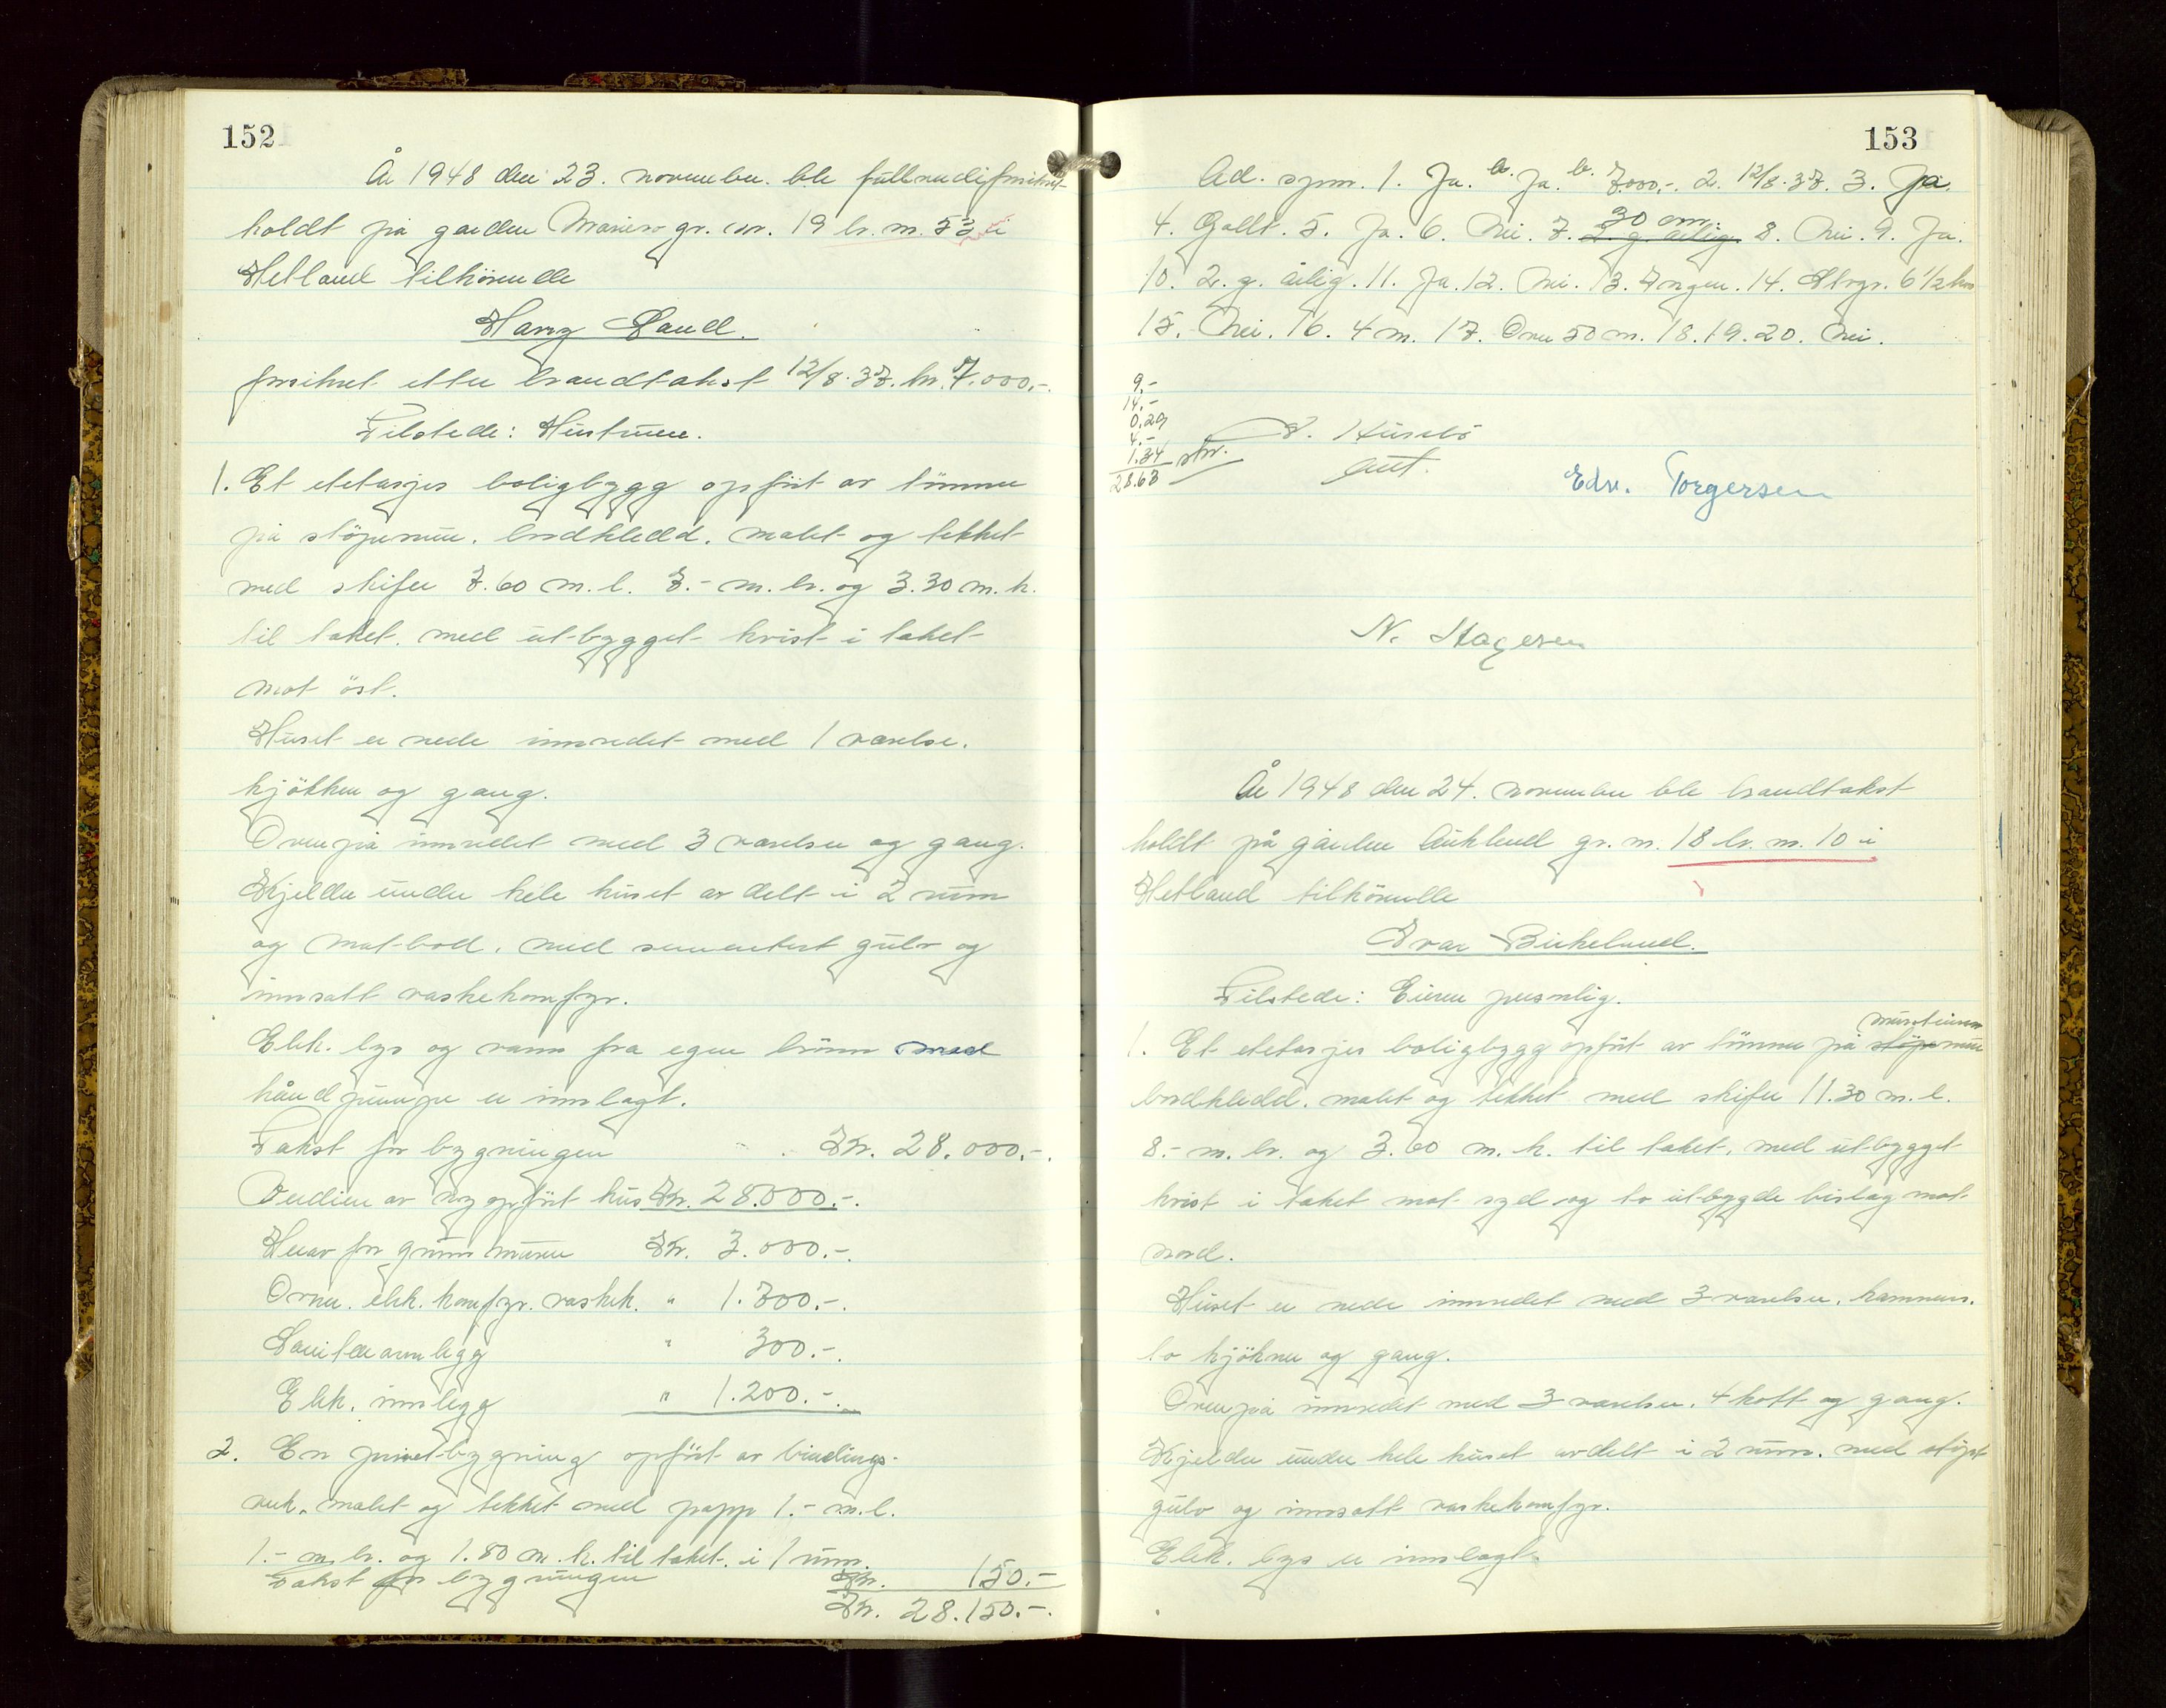 152
År 1948 den 23. november ble fullverdiforsikret
holdt på garden Mariero gr. nr. 19 br. nr. 53 i
Hetland tilhörende
Hans Sand.
forsikret etter brandtakst 12/8.37. kr. 7.000,-.
Tilstede: Hustruen.
1. Et etetasjes boligbygg opfört av tömmer
på stöpemur, bordkledd, malet og tekket
med skifer 7.60 m. l. 7.- m. br. og 3.30 m. h.
til taket, med utbygget kvist i taket
mot öst.
Huset er nede innredet med 1 værelse,
kjökken og gang.
Ovenpå innredet med 3 værelser og gang.
Kjelder under hele huset avdelt i 2 rum
og matbod, med sementert gulv og
innsatt vaskekomfyr.
Elek. lys og vann fra egen brönn med
håndpumpe er innlagt.
Takst for bygningen Kr. 28.000.-.
Verdien av ny opfört hus Kr. 28.000.-.
Herav for grunnmuren Kr. 3.000.-.
Ovner, elek. komfyr, vaskek. " 1.700.-.
Sanitæranlegg " 300.-.
Elek. innlegg " 1.200.-.
2. En privetbygning opfört av bindings-
verk, malet og tekket med papp 1.- m. l.
1.- m. br. og 1.80 m. h. til taket, i 1 rum.
Takst for bygningen Kr. 150.-
Kr. 28.150.-.
153
Ad. spm. 1. Ja. a. Ja. b. 7.000,-. 2. 12/8.37. 3. Ja.
30 cm.
4. Godt. 5. Ja. 6. Nei. 7. 2. g. årlig. 8. Nei. 9. Ja.
10. 2. g. årlig. 11. Ja. 12. Nei. 13. Ingen. 14. Stvgr. 6 1/2 km
15. Nei. 16. 4 m. 17. Over 50 m. 18. 19. 20. Nei.
9.-
14.-
0.29
4.-
1.34
28.63
S. Husebö
Edv. Torgersen
N. Hagesen
År 1948 den 24. november ble brandtakst
holdt på gården Aukland gr. nr. 18 br. nr. 10 i
Hetland tilhörende
Ivar Birkeland.
Tilstede: Eieren personlig.
murstein
1. Et etetasjes boligbygg opfört av tömmer på stöpemur
bordkledd, malet og tekket med skifer 11.30 m. l.
8.- m. br. og 3.60 m. h. til taket, med utbygget
kvist i taket mot syd og to utbygde bislag mot
nord.
Huset er nede innredet med 3 værelser, kammers,
to kjökner og gang.
Ovenpå innredet med 3 værelser, 4 kott og gang.
Kjelder under hele huset avdelt i 2 rum, med stöpt
gulv og innsatt vaskekomfyr.
Elek. lys er innlagt.